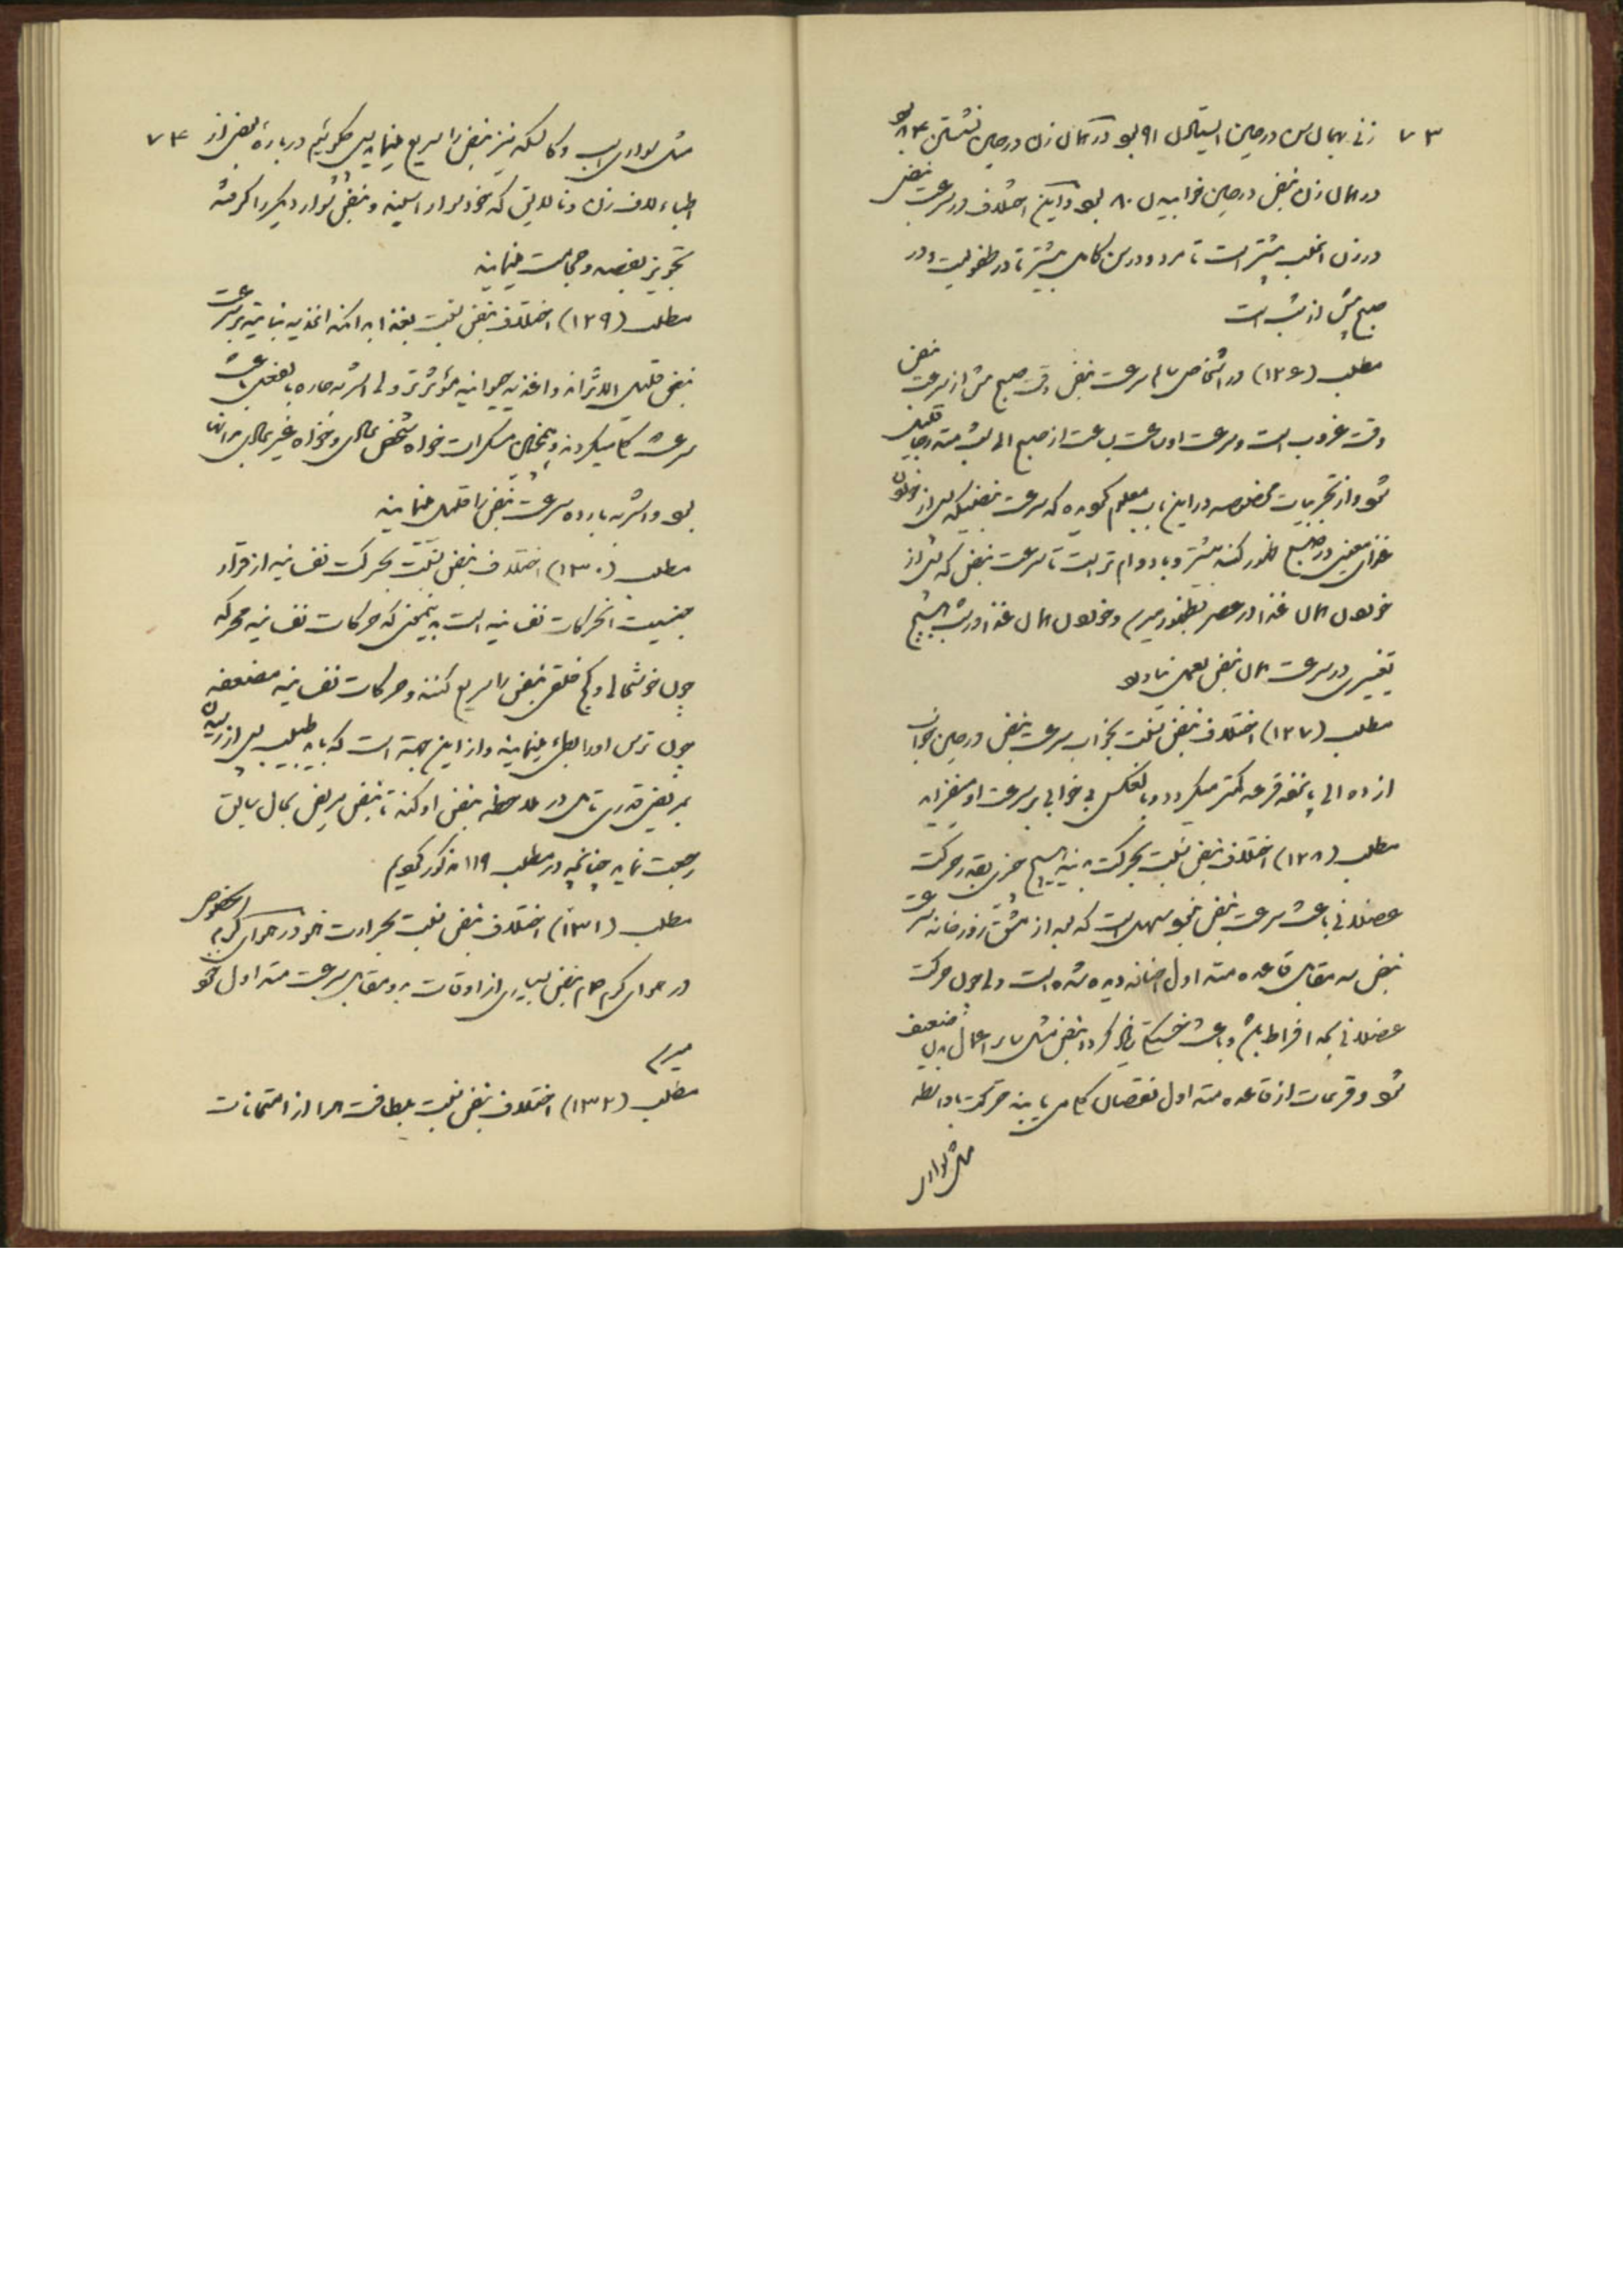 ۷۳
زنی بهمان سن در حین استیادن ۹۱ بود در همان زن در حین نشستن ۸۴ بود
در همان زن نبض در حین خوابیدن ۸۰ بود و این اختلاف در سرعت نبض
در زن اغلب بیشتر است تا مرد و در سن کامل بیشتر تا در طفولیت و در
صبح بیش از شب است
مطلب (۱۲۶) در اشخاص سالم سرعت نبض وقت صبح بیش از سرعت نبض
وقت غروب است و سرعت او ساعت بساعت از صبح الی بشب متدرجا قلیل
شود و از تجربیات مخصوصه در این باب معلوم گردیده که سرعت نبضیکه پس از خوردن
غذای معینی در صبح ظهور کند بیشتر و با دوام تر است تا سرعت نبض که پس از
خوردن همان غذا در عصر بظهور میرسد و خوردن همان غذا در شب هیچ
تغییری در سرعت همان نبض بعمل نیاورد
مطلب (۱۲۷) اختلاف نبض نسبت بخواب سرعت نبض در حین خواب
از ده الی پانزده قرعه کمتر میگردد و بالعکس بی خوابی بر سرعت او میفزاید
مطلب (۱۲۸) اختلاف نبض نسبت بحرکت بدنیه هیچ چیزی بقدر حرکت
عضلانی باعث سرعت نبض نبود سهل است که بعد از مشق زورخانه سرعت
نبض سه مقابل قاعده متداول انسانه دیده شده است ولی چون حرکت
عضلانی بحد افراط باشد و باعث خستگی زیاد گردد نبض مثل سایر اعمال بدن ضعیف
شود و قرعات از قاعده متداول نقصان کلی یابند حرکت بلاواسطه
مثل سواری
۷۴
مثل سواری اسب و کالسکه نیز نبض را سریع مینمایند پس چه گوئیم درباره بعضی از
اطباء لاف زن و نالایق که خود سوار اسبند و نبض سوار دیگر را گرفته
تجویز بفصد و حجامت مینمایند
مطلب (۱۲۹) اختلاف نبض نسبت بغذا بدانکه اغذیه نباتیه بر سرعت
نبض قلیل الاثراند و اغذیه حیوانیه مؤثرتر ولی اشربه حاره بالفعل باعث
سرعت کلی میگردند و همچنان مسکرات خواه شخص عادی و خواه غیر عادی بدانها
بود و اشربه بارده سرعت نبض را قلیل مینمایند
مطلب (۱۳۰) اختلاف نبض نسبت بحرکت نفسانیه از قرار
جنسیت انحرکات نفسانیه است بدینمعنی که حرکات نفسانیه محرکه
چون خوشحالی و کج خلقی نبض را سریع کنند و حرکات نفسانیه مضعفه
چون ترس او را بطئ مینمایند و از این جهة است که باید طبیب پس از رسیدن
بمریض قدری تامل در ملاحظه نبض او کند تا نبض مریض بحال سابق
رجعت نماید چنانچه در مطلب ۱۱۹ مذکور گردید
مطلب (۱۳۱) اختلاف نبض نسبت بحرارت هوا در هوای گرم بالخصوص
در هوای گرم حمام نبض بسیاری از اوقات بدو مقابل سرعت متداول خود
میرسد
مطلب (۱۳۲) اختلاف نبض نسبت بلطافت هوا از امتحانات